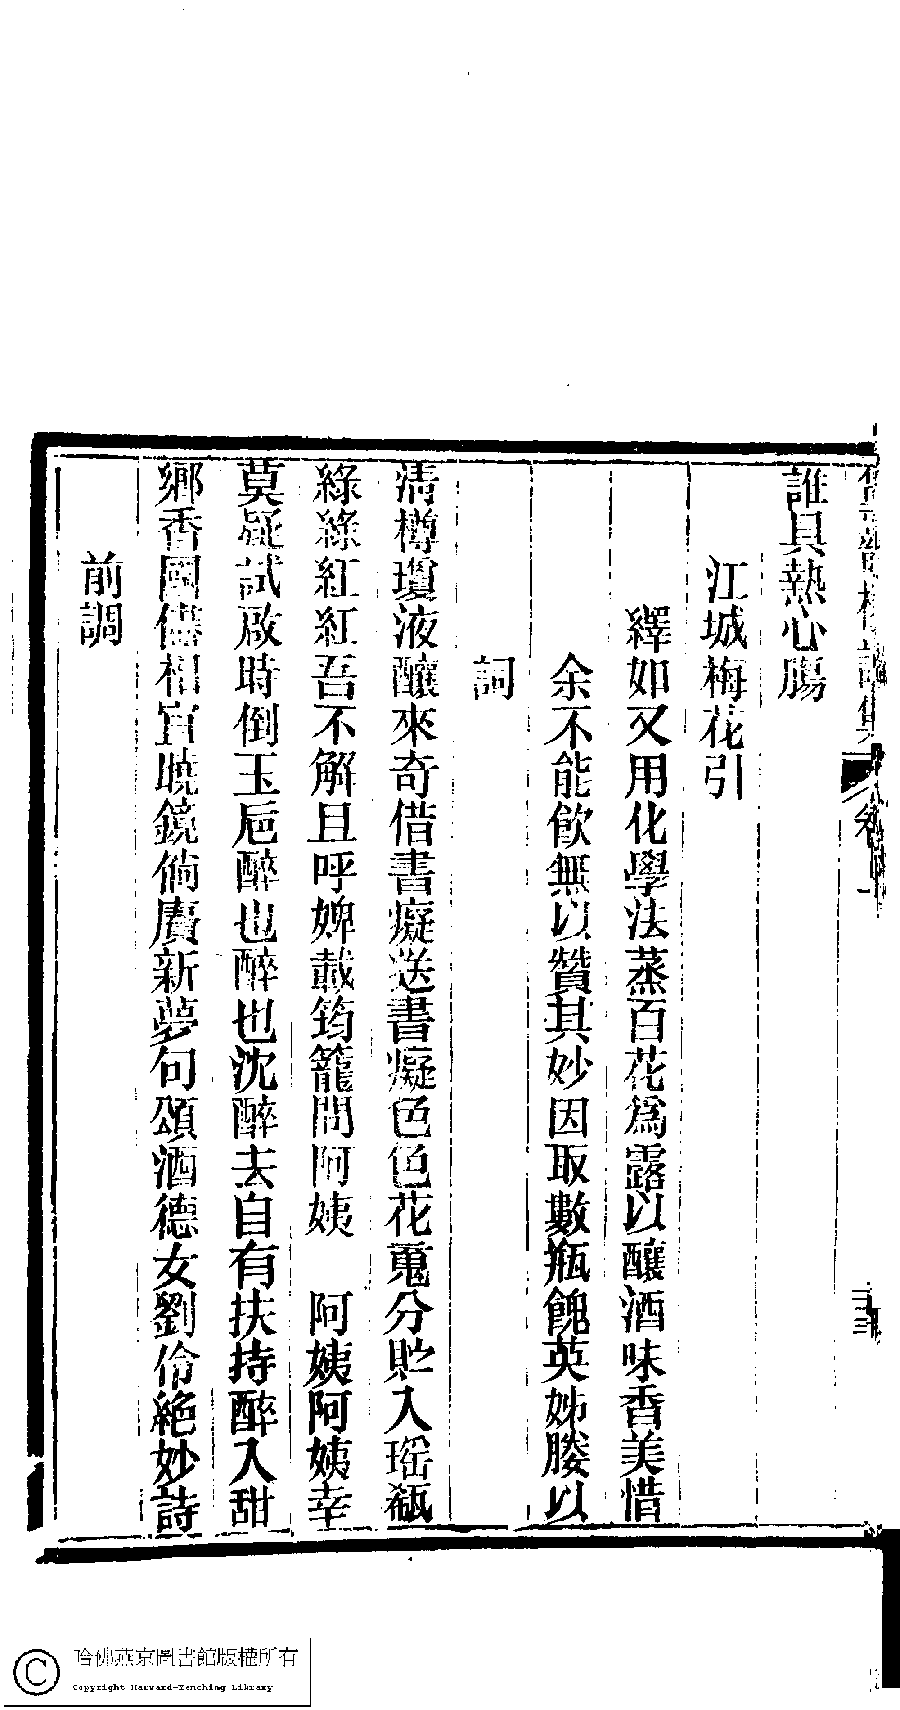 誰具熱心膓
江城梅花引
繹如又用化學法蒸百花爲露以釀酒味香美惜
余不能飮無以贊其妙因取數瓶餽英姊媵以
詞
清樽瓊液釀來奇借書癡送書癡色色花䰟分貯入瑶瓻
綠綠紅紅吾不解且呼婢載筠籠問阿姨　阿姨阿姨幸
莫疑試啟時倒玉巵醉也醉也沈醉去自有扶持醉入甜
鄉香國儘相宜曉鏡倘賡新夢句頌酒德女劉伶絶妙詩
前調
卷一
哈佛燕京圖書館版權所有
Copyright Harvard-Yenching Library